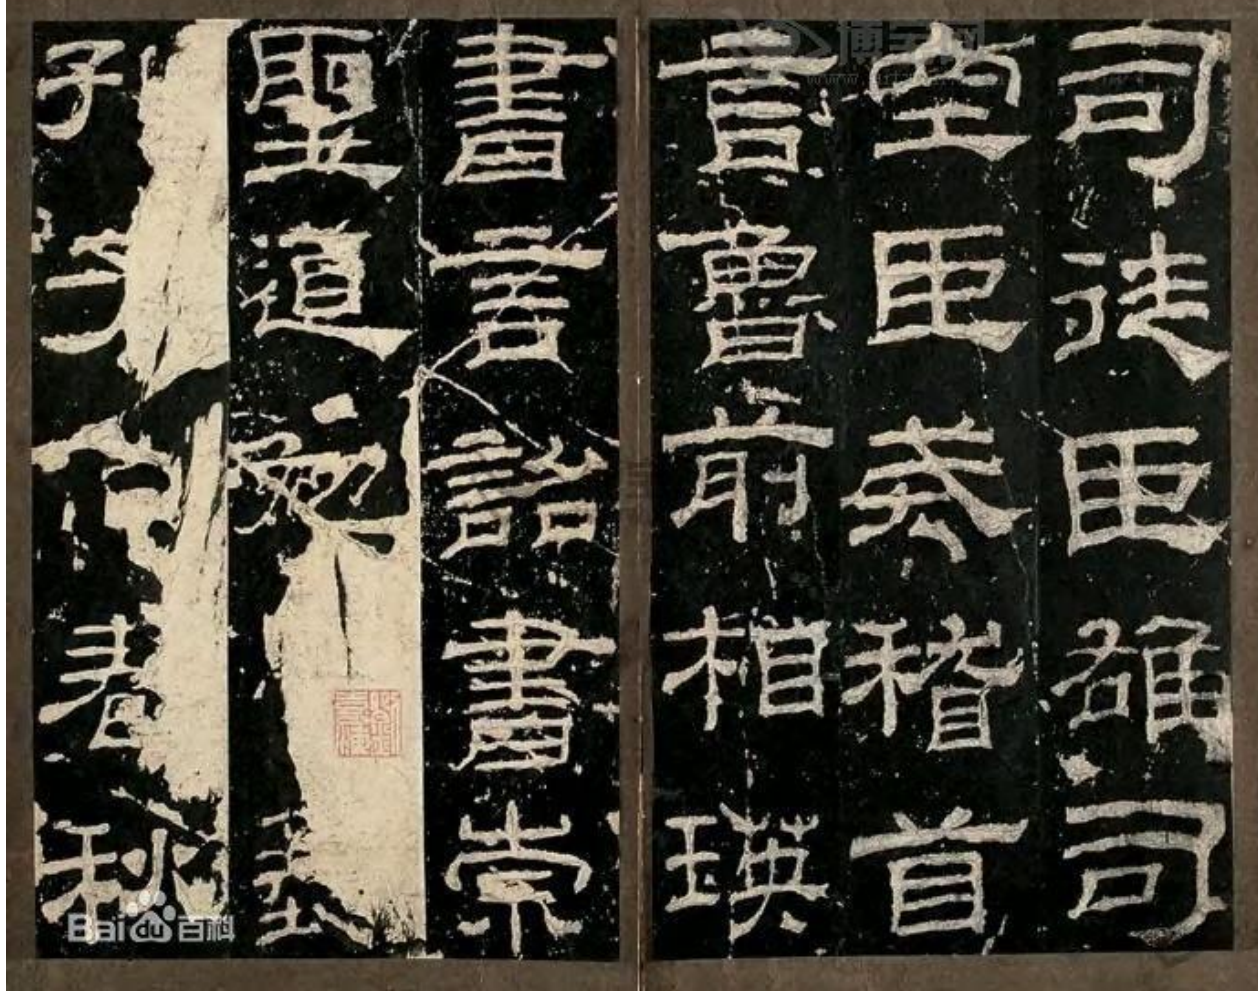 司徒臣雄司
空臣戒稽首
言魯前相瑛
書言詔書崇
聖道勉藝
孔子春秋
Baidu百科